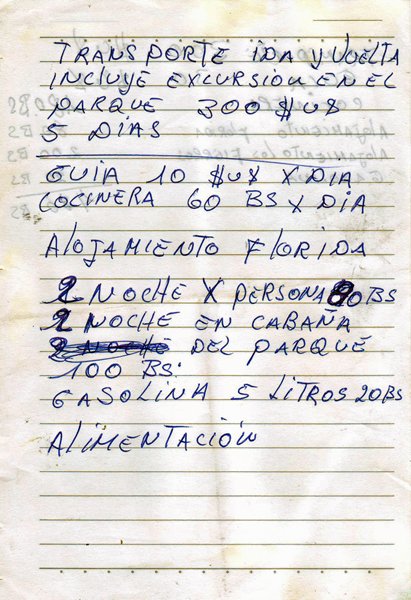 TRANSPORTE IDA y VUELTA
INCLUYE EXCURSION EN EL
PARQUE 300 $US
5 DIAS
GUIA 10 $US X DIA
COCINERA 60 BS X DIA
ALOJAMIENTO FLORIDA
2 NOCHE X PERSONA 80 BS
2 NOCHE EN CABAÑA
DEL PARQUE
100 BS.
GASOLINA 5 LITROS 20 BS
ALIMENTACIÓN